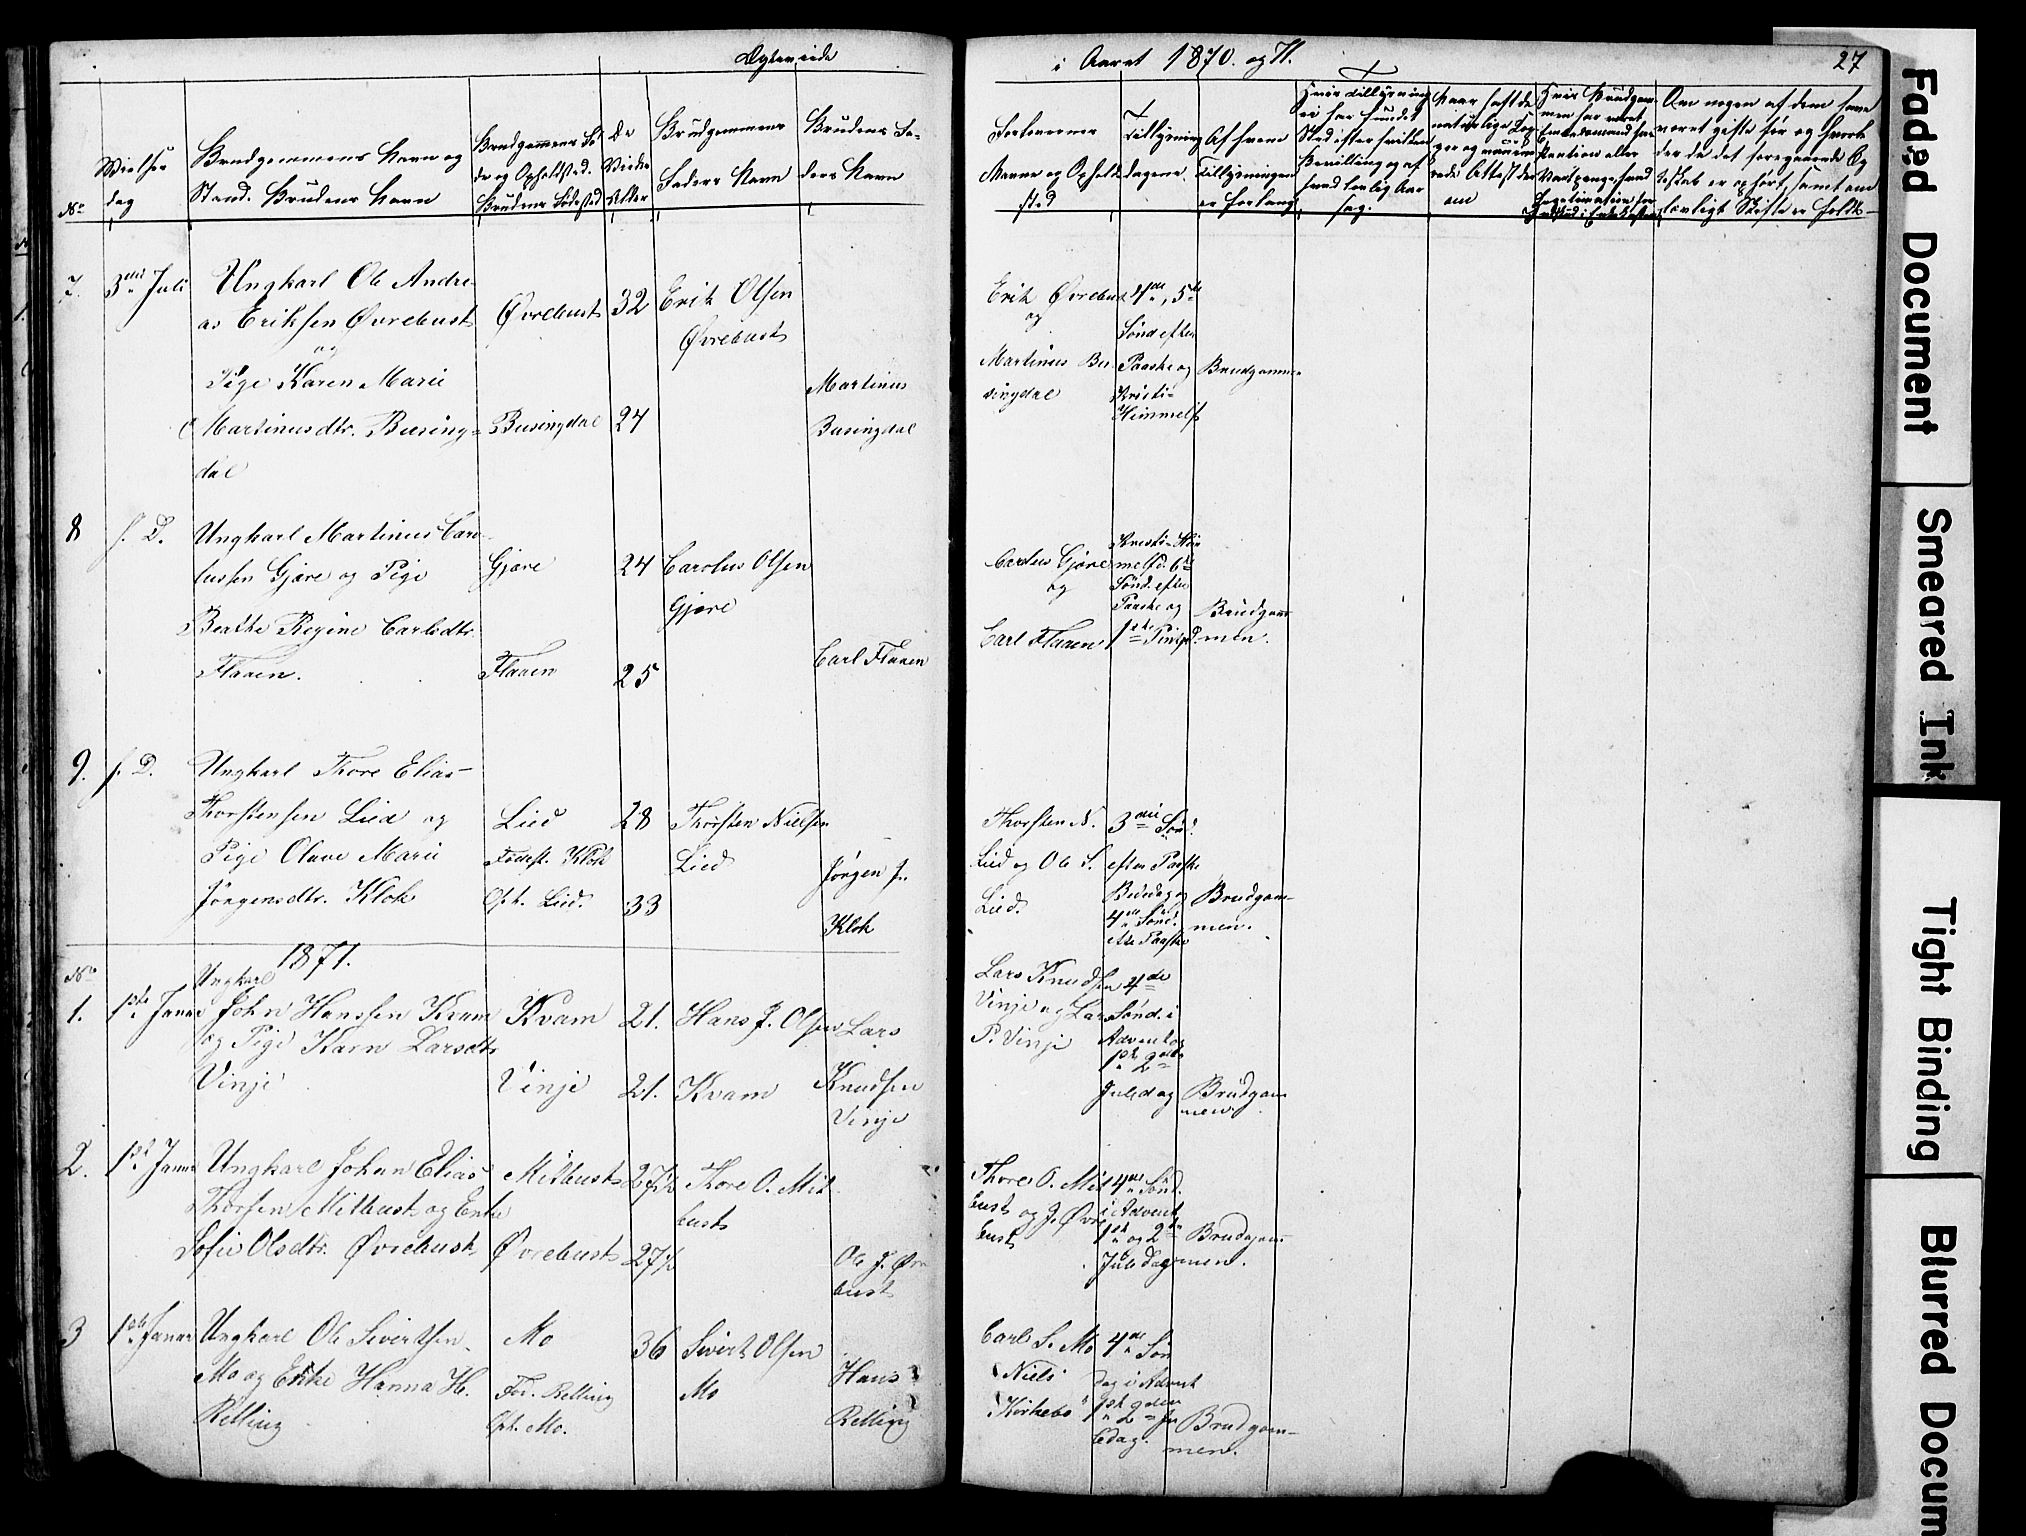 Ægteviede
i Aaret 1870. og 71.
27
No
Vielses
dag
Brudgommens Navn og
Stand. Brudens Navn
Brudgommens Fø
de og Opholdsted.
Brudens Fødested
De
Viedes
Alder
Brudgommens
Faders Navn
Brudens Fa-
ders Navn
Forlovernes
Navne og Ophold
sted
Tillysnings
dagene.
Af hvem
Tillysningen
er forlangt
Hvis Tillysning
ei har fundet
Sted efter hvilken
Bevilling og af
hvad lovlig Aar
sag.
Om nogen af dem have
været gifte før og hvorle
der da det foregaaende Æg
teskab er ophørt, samt om
lovligt Skifte er holdt
7. 3die Juli
Ungkarl Ole Andre-
as Eriksen Øvrebust
og
Pige Karen Marie
Martinusdtr. Busing-
dal
Øvrebust 32 Erik Olsen
Øvrebust
Busingdal 24
Martinus
Busingdal
Erik Øvrebust
og
Martinus Bu
singdal
4de, 5te
Sønd efter
Paaske og
Kristi-
Himmelf
Brudgomme
8 s. D.
Ungkarl Martinus Caro-
lussen Gjære og Pige
Beathe Regine Carlsdtr.
Flaaen.
Gjære 24 Carolus Olsen
Gjære
Flaaen 25
Carl Flaaen
Carolus Gjære
og
Carl Flaaen
Kristi-Him
melfd. 6te
Sønd. efter
Paaske og
1ste Pinsed.
Brudgom
men.
9. s. D.
Ungkarl Thore Elias
Thorstensen Lied og
Pige Olave Marie
Jørgensdtr. Klok
Lied 28 Thorsten Nielsen
Lied
Fødest. Klok
Oph. Lied. 33
Jørgen J.
Klok
Thorsten N.
Lied og Ole S.
Lied.
3die Sønd.
efter Paaske
Bededag og
4de Sønd.
efter Paaske
Brudgom-
men.
1871.
No
1. 1ste Januar
Ungkarl
John Hanssen Kvam
og Pige Karn Larsdtr
Vinje
Kvam 21. Hans J. Olsen
Kvam
Vinje 21.
Lars
Knudsen
Vinje
Lars Knudsen
Vinje og Lars
P. Vinje
4de
Sønd. i
Advent og
1ste og 2den
Juledag
Brudgom
men.
2. 1ste Januar
Ungkarl Johan Elias
Thorsen Mitbust og Enke
Sofie Olsdtr. Øvrebust
Mitbust 27½ Thore O. Mit
bust
Øvrebust 27½
Ole J. Øvre
bust
Thore O. Mit
bust og J. Øvre
bust
4de Sønd.
i Advent
1ste og 2den
Juledag
Brudgom
men.
3 1ste Januar
Ungkarl Ole Sivertsen
Mo og Enke Hanna H.
Relling
Mo 36 Sivert Olsen
Mo
Fød. Relling
Oph. Mo.
Hans
Relling
Carl S. Mo
Niels
Kirkebø
4de Søn
dag i Advent
1ste og den
2den Ju
ledag.
Brudgom-
men.
Faded Document
Smeared Ink
Tight Binding
Blurred Docum